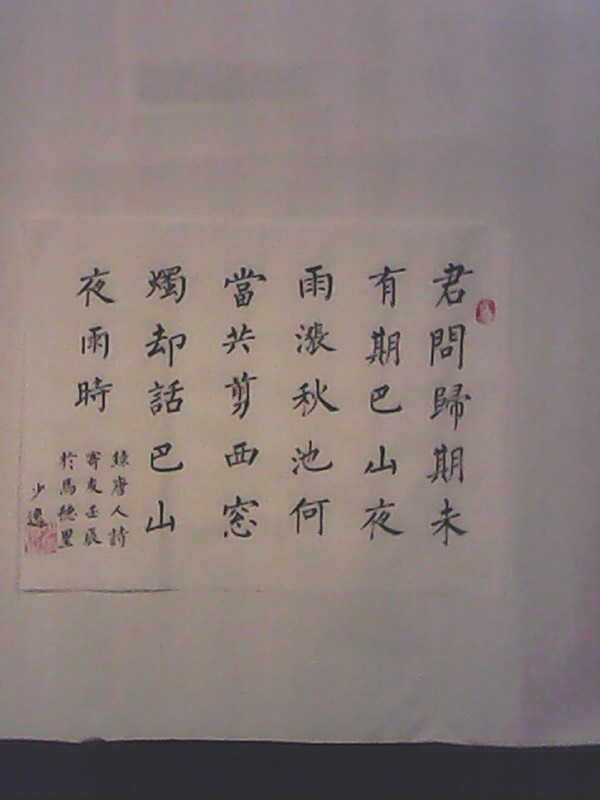 君問歸期未
有期巴山夜
雨漲秋池何
當共剪西窓
燭却話巴山
夜雨時
錄唐人詩
寄友壬辰
於馬德里
少逸